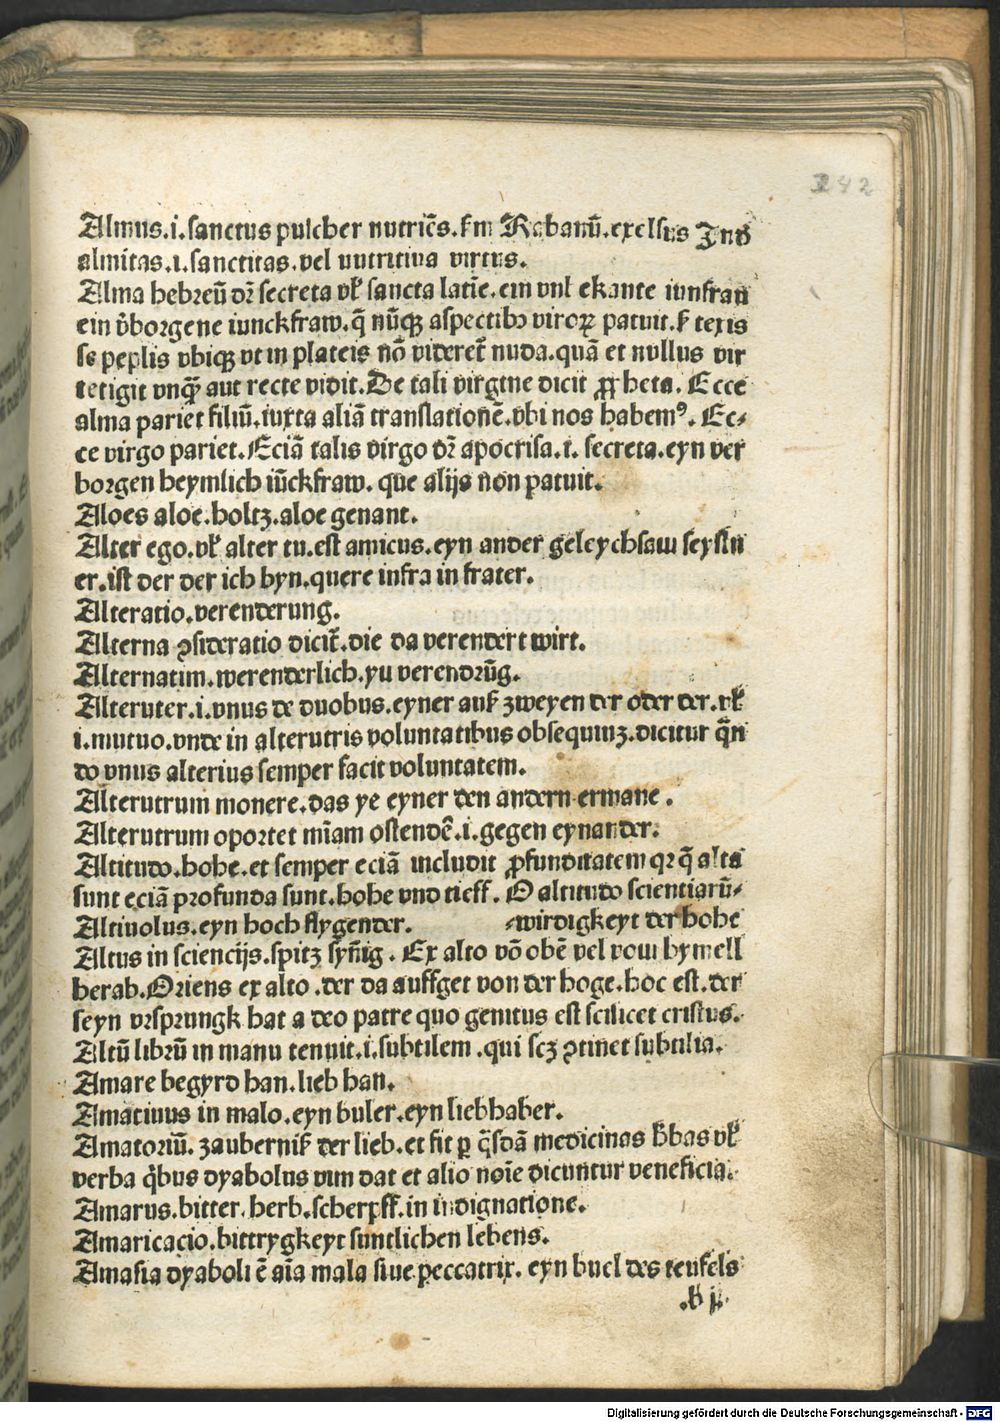 242
Almus.i.sanctus pulcher nutriēs. ẜm Rabanū.excelsus Jnð
almitas.i.sanctitas.vel nutritiua virtus.
Alma hebreū dꝛ̄ secreta vł sancta latīe.ein vnl ekante iunfrau
ein v̄borgene iunckfraw.q̄ nūqꝫ aspectibꝫ viroꝝ patuit.ẜ texis
se peplis vbiqꝫ vt in plateis nō videret̄ nuda.quā et nullus vir
tetigit vnqꝫ̄ aut recte vidit.De tali virgine dicit ꝓpheta. Ecce
alma pariet filiū.iuxta aliā translationē.vbi nos habemꝰ. Ec⸗
ce virgo pariet.Eciā talis virgo dꝛ̄ apocrisa.i. secreta.eyn ver
borgen heymlich iūckfraw. que alijs non patuit.
Aloes aloe.holtz.aloe genant.
Alter ego.vł alter tu.est amicus.eyn ander geleychsam
er.ist der der ich byn.quere infra in frater.
Alteratio.verenderung.
Alterna ꝯsideratio dicit̄.die da verendert wirt.
Alternatim.werenderlich.yu verendrūg.
Alteruter.i.vnus de duobus.eyner auß zweyen der oder der.vł
i.mutuo.vnde in alterutris voluntatibus obsequiuꝫ.dicitur qn̄
do vnus alterius semper facit voluntatem.
Alterutrum monere.das ye eyner den andern ermane .
Alterutrum oportet mīam ostendē.i.gegen eynander.
Altitudo.hohe.et semper eciā includit ꝓfunditatem qꝛ q̄ alta
sunt eciā profunda sunt.hohe vnd tieff. O altitudo scientiarū⸗
Altiuolus.eyn hoch flygender. ⸗wirdigkeyt der hohe
Altus in sciencijs.spitz syn̄ig . Ex alto vō obē vel vom hymell
herab.Oriens ex alto .der da auffget von der hoge.hoc est.der
seyn vrsprungk hat a deo patre quo genitus est scilicet cristus.
Altū librū in manu tenuit.i.subtilem .qui scꝫ ꝯtinet subtilia.
Amare begyrd han.lieb han.
Amatiuus in malo.eyn buler.eyn liebhaber.
Amatoriū. zauberniß der lieb.et fit ꝑ q̄sdā medicinas h̄bas vł
verba q̄bus dyabolus vim dat et alio noīe dicuntur veneficia.
Amarus.bitter.herb.scherpff.in indignatione.
Amaricacio.bittrygkeyt suntlichen lebens.
Amasia dyaboli ē aīa mala siue peccatrix. eyn buel des teufels
Digitalisierung gefördert durch die Deutsche Forschungsgemeinschaft - DFG